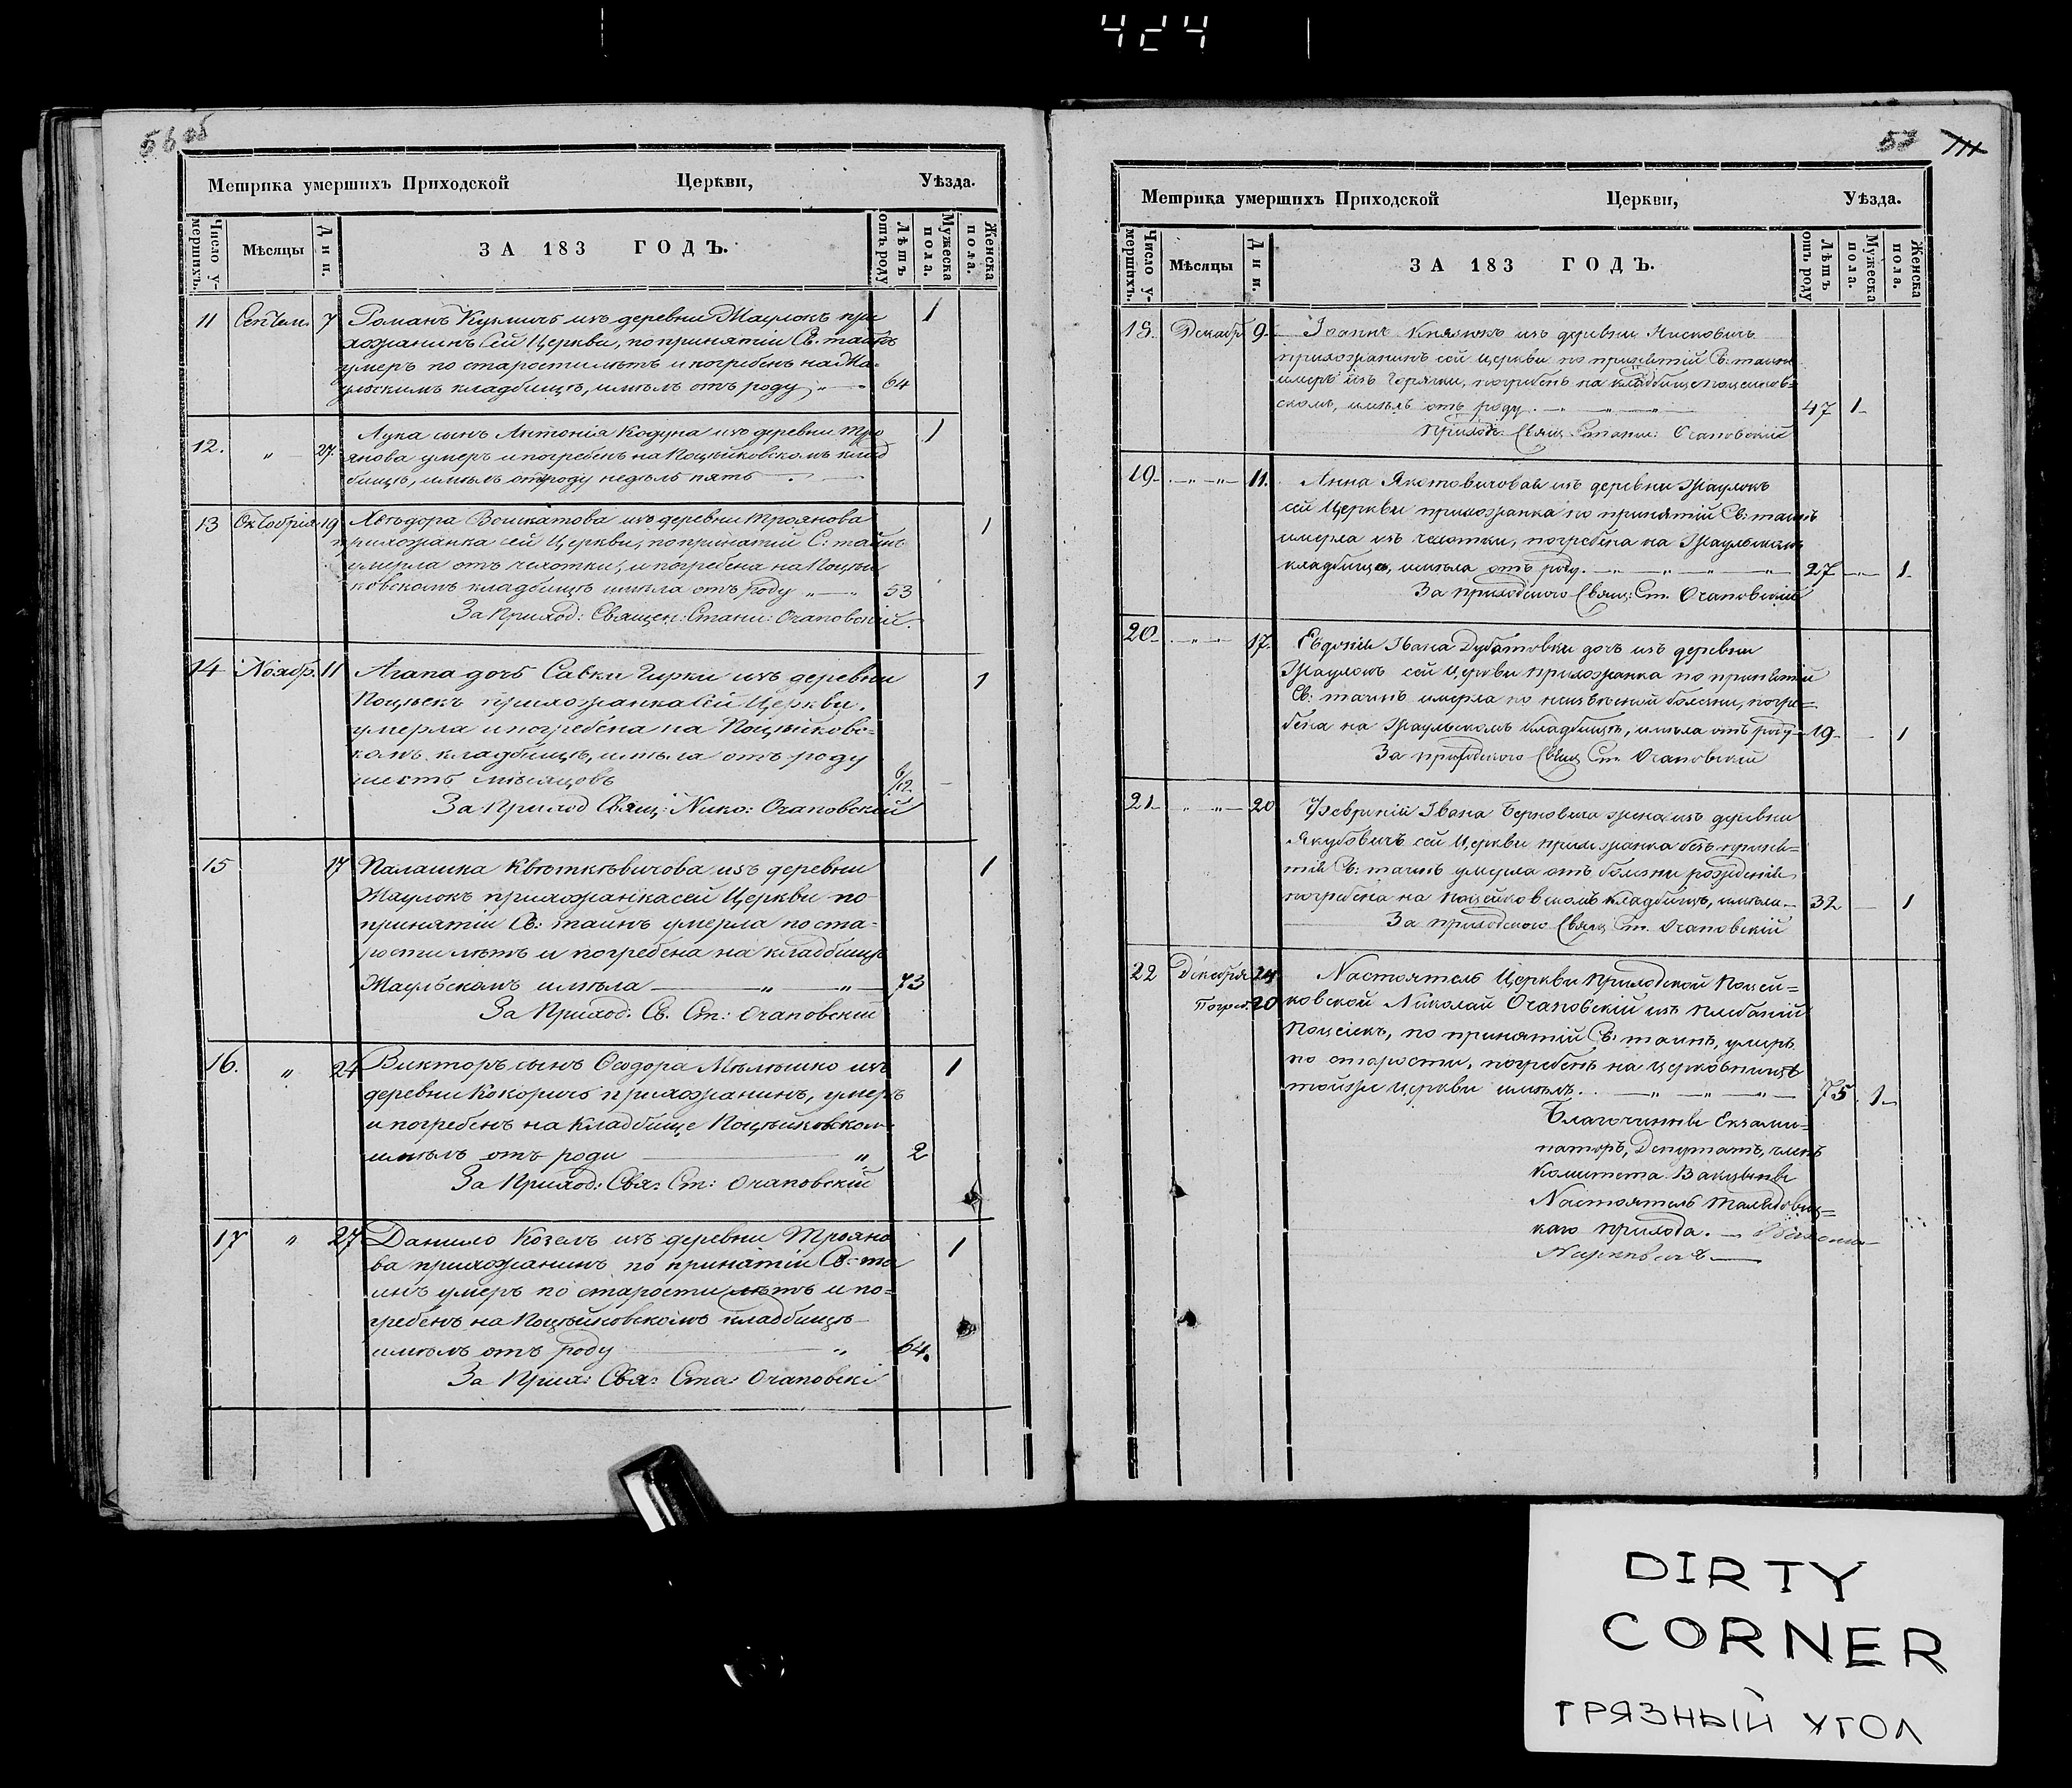 424
56 об
Метрика умершихъ Приходской Церкви, Уѣзда.
Число умершихъ. Мѣсяцы Дни. ЗА 183 ГОДЪ. Лѣтъ отъ роду Мужеска пола. Женска пола.
11 Сентем. 7 Романъ Кузмичъ изъ деревни Жаулокъ при 1
хожанинъ сей Церкви, по принятіи Св. таинъ
умеръ по старости лѣтъ и погребенъ на Жа-
ульскимъ кладбищѣ, имѣлъ отъ роду „ 64
12. „ 27. Лука сынъ Антонія Кодуна изъ деревни Тро 1
янова умеръ и погребенъ на Поцѣйковскомъ клад
бищѣ, имѣлъ отъ роду недѣль пять
13 Октобрія 19 Ѳеодора Воинатова изъ деревни Троянова 1
прихожанка сей Церкви, по принятіи С: таинъ
умерла отъ чехотки, и погребена на Поцѣй
ковскомъ кладбищѣ имѣла отъ роду „ 53
За Приход: Священ: Стани: Очаповскій.
14 Ноябр. 11 Агапа дочь Савки Гирки изъ деревни 1
Поцѣекъ прихожанка сей Церкви.
умерла и погребена на Поцѣйковс-
комъ кладбищѣ, имѣла отъ роду
шесть мѣсяцовъ 6/12
За Приход Свящ: Нико: Очаповскій
15 17 Палашка Квѣткѣвичова изъ деревни 1
Жаулокъ прихожанка сей Церкви по
принятіи Св: таинъ умерла по ста-
рости лѣтъ и погребена на кладбищѣ
Жаульскомъ имѣла „ „ 73
За Приход. Св. Ст: Очаповскій
16. „ 24 Викторъ сынъ Ѳеодора Мѣлѣшко изъ 1
деревни Кокоричъ прихожанинъ, умеръ
и погребенъ на кладбище Поцѣйковском
имѣлъ отъ роди „ 2
За Приход: Свя: Ст: Очаповскій
17 „ 27 Данило Козелъ изъ деревни Трояно 1
ва прихожанинъ по принятіи Св: та
инъ умеръ по старости лѣтъ и по-
гребенъ на Поцѣйковскомъ кладбищѣ
имѣлъ отъ роду „ 64.
За Прих: Свя: Ста: Очаповскі
57
Метрика умершихъ Приходской Церкви, Уѣзда.
Число умершихъ. Мѣсяцы Дни. ЗА 183 ГОДЪ. Лѣтъ отъ роду Мужеска пола. Женска пола.
18. Декабр 9 Іоаннъ Князюкъ изъ деревни Нисковичъ
прихожанинъ сей церкви по принятій Св: таинъ
умеръ изъ горячки, погребенъ на кладбище поцейков-
скомъ, имѣлъ отъ роду. „ „ „ 47 1
Приход: Свящ Стани: Очаповскій
19 „ „ 11. Анна Якотовичовая изъ деревни Жаулокъ
сей Церкви прихожанка по принятій Св: таинъ
умерла изъ чахотки, погребена на Жаульскомъ
кладбище, имѣла отъ роду. „ „ „ „ 27 1
За приходского Свящ: Ст. Очаповскій
20 „ „ 17. Евдокія Івана Дубатовки дочь изъ деревни
Жаулокъ сей Церкви прихожанка по принятій
Св: таинъ умерла по неизвѣсной болезни, погре=
бена на Жаульскомъ кладбищѣ, имѣла отъ роду 19 1
За приходского Свящ Ст. Очаповскій
21 „ „ 20 Февронія Івана Берновича жена изъ деревни
Якубовичъ сей Церкви прихожанка безъ приня-
тія Св: таинъ умерла отъ болезни рожденія
погребена на поцейковскомъ кладбищѣ, имѣла 32 1
За приходского Свящ Ст. Очаповскій
22 Декабря 24 Настоятель Церкви Приходской Поцей=
Погреб. 20 ковской Николай Очаповскій изъ плебаніи
Поцеекъ, по принятій Св: таинъ, умеръ
по старости, погребенъ на церковнищѣ
тойже церкви имѣлъ. „ „ „ 75 1
Благочинный Екзами-
наторъ, Депутатъ, членъ
Комитета
Настоятель
каго прихода.
DIRTY
CORNER
ГРЯЗНЫЙ УГОЛ